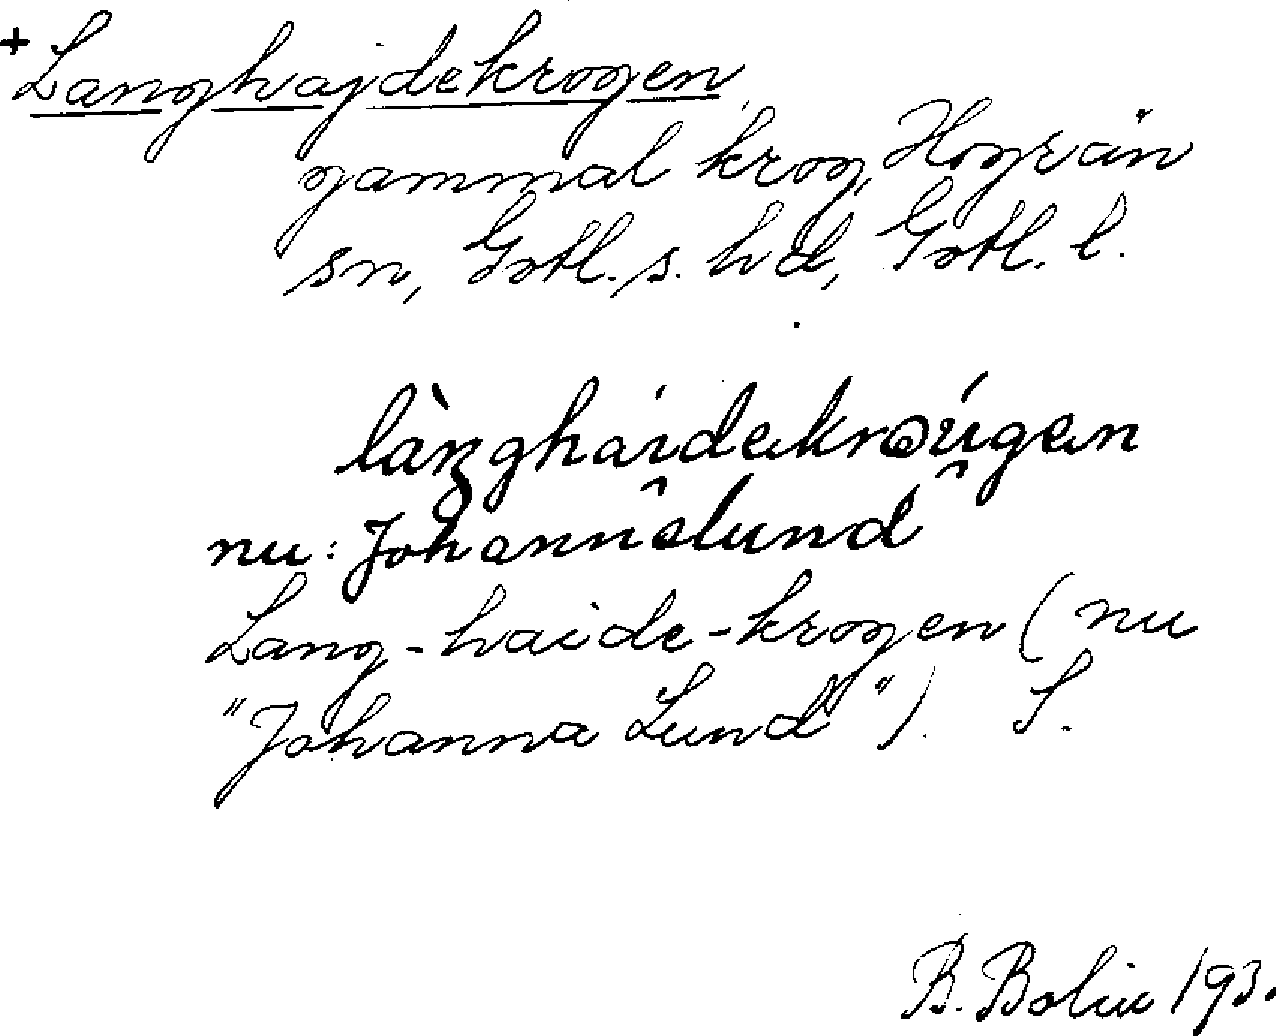 + Langhajdekrogen
gammal krog, Hogrän
sn, Gotl. s. hd, Gotl. l.
làŋghaidəkrơu̇gən
nu: Johannəslund
Lang-haide-krogen (nu
"Johanna Lund"). S.
B. Bolin 193.